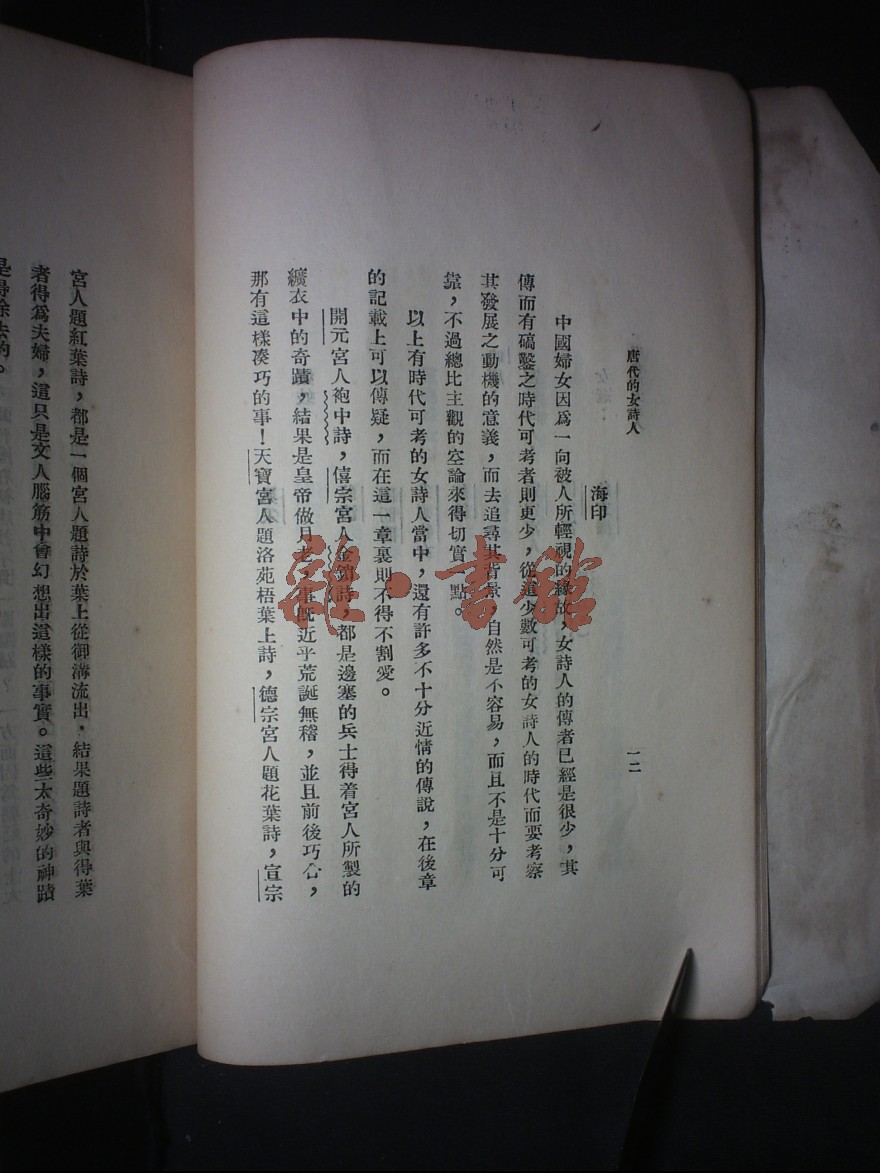 唐代的女詩人
一二
海印
中國婦女因爲一向被人所輕視的緣故，女詩人的傳者已經是很少，其
傳而有碻鑿之時代可考者則更少，從這少數可考的女詩人的時代而要考察
其發展之動機的意義，而去追尋其背景，自然是不容易，而且不是十分可
靠，不過總比主觀的空論來得切實一點。
以上有時代可考的女詩人當中，還有許多不十分近情的傳說，在後章
的記載上可以傳疑，而在這一章裏則不得不割愛。
開元宮人袍中詩，僖宗宮人金鎖詩，都是邊塞的兵士得着宮人所製的
纊衣中的奇蹟，結果是皇帝做月老，事旣近乎荒誕無稽，並且前後巧合，
那有這樣凑巧的事！天寶宮人題洛苑梧葉上詩，德宗宮人題花葉詩，宣宗
宮人題紅葉詩，都是一個宮人題詩於葉上從御溝流出，結果題詩者與得葉
者得爲夫婦，這只是文人腦筋中會幻想出這樣的事實。這些太奇妙的神蹟
是得除去的。
雜·書館